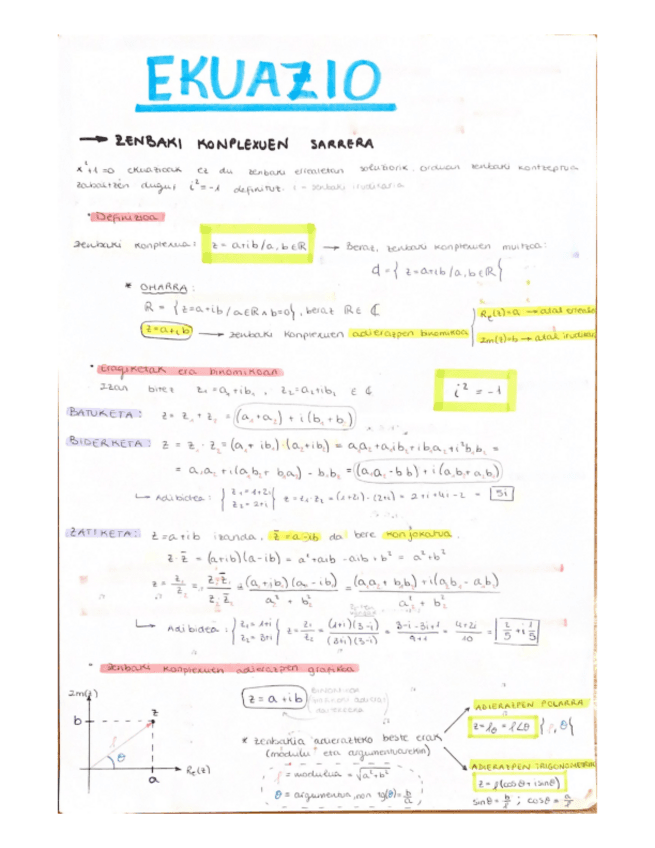 EKUAZIO
→ ZENBAKI KONPLEXUEN SARRERA
x²+1=0 ekuazioak ez du zenbaki errealetan soluziorik, orduan zenbaki kontzeptua
zabaltzen dugu, i²=-1 definituz. i - zenbaki irudikaria
• Definizioa
Zenbaki konplexua: z = a+ib / a, b ∈ ℝ → Beraz, zenbaki konplexuen multzoa:
ℂ = { z=a+ib / a, b ∈ ℝ }
* OHARRA:
ℝ = { z=a+ib / a∈ℝ ∧ b=0 }, beraz ℝ ∈ ℂ
z=a+ib → zenbaki konplexuen adierazpen binomikoa { Re(z)=a → atal erreala
Im(z)=b → atal irudikari
• Eragiketak era binomikoan
Izan bitez z₁=a₁+ib₁, z₂=a₂+ib₂ ∈ ℂ
i² = -1
BATUKETA: z = z₁ + z₂ = (a₁+a₂) + i(b₁+b₂)
BIDERKETA: z = z₁ · z₂ = (a₁+ib₁)·(a₂+ib₂) = a₁a₂+a₁ib₂+ib₁a₂+i²b₁b₂ =
= a₁a₂+i(a₁b₂+b₁a₂) - b₁b₂ = (a₁a₂-b₁b₂) + i(a₁b₂+a₂b₁)
↳ Adibidea: { z₁=1+2i z₂=2+i } z=z₁·z₂=(1+2i)·(2+i) = 2+i+4i-2 = 5i
ZATIKETA: z=a+ib izanda, z̄=a-ib da bere konjokatua.
z·z̄ = (a+ib)(a-ib) = a²+aib-aib+b² = a²+b²
z = z₁/z₂ = z₁·z̄₂/z₂·z̄₂ = (a₁+ib₁)(a₂-ib₂)/a₂²+b₂² = (a₁a₂+b₁b₂)+i(a₂b₁-a₁b₂)/a₂²+b₂²
↳ Adibidea: { z₁=1+i z₂=3+i } z=z₁/z₂ = (1+i)(3-i)/(3+i)(3-i) = 3-i+3i+1/9+1 = 4+2i/10 = 2/5 + i 1/5
• Zenbaki konplexuen adierazpen grafikoa
Im(z)
b
z
ρ
θ
a
Re(z)
z=a+ib
* zenbakia adierazteko beste erak
(modulu eta argumentuarekin)
ρ = modulua = √a²+b²
θ = argumentua, non tg(θ)=b/a
ADIERAZPEN POLARRA
z=ρθ = ρ∠θ {ρ, θ}
ADIERAZPEN TRIGONOMETRIK
z=ρ(cosθ+isinθ)
sinθ=b/ρ ; cosθ=a/ρ